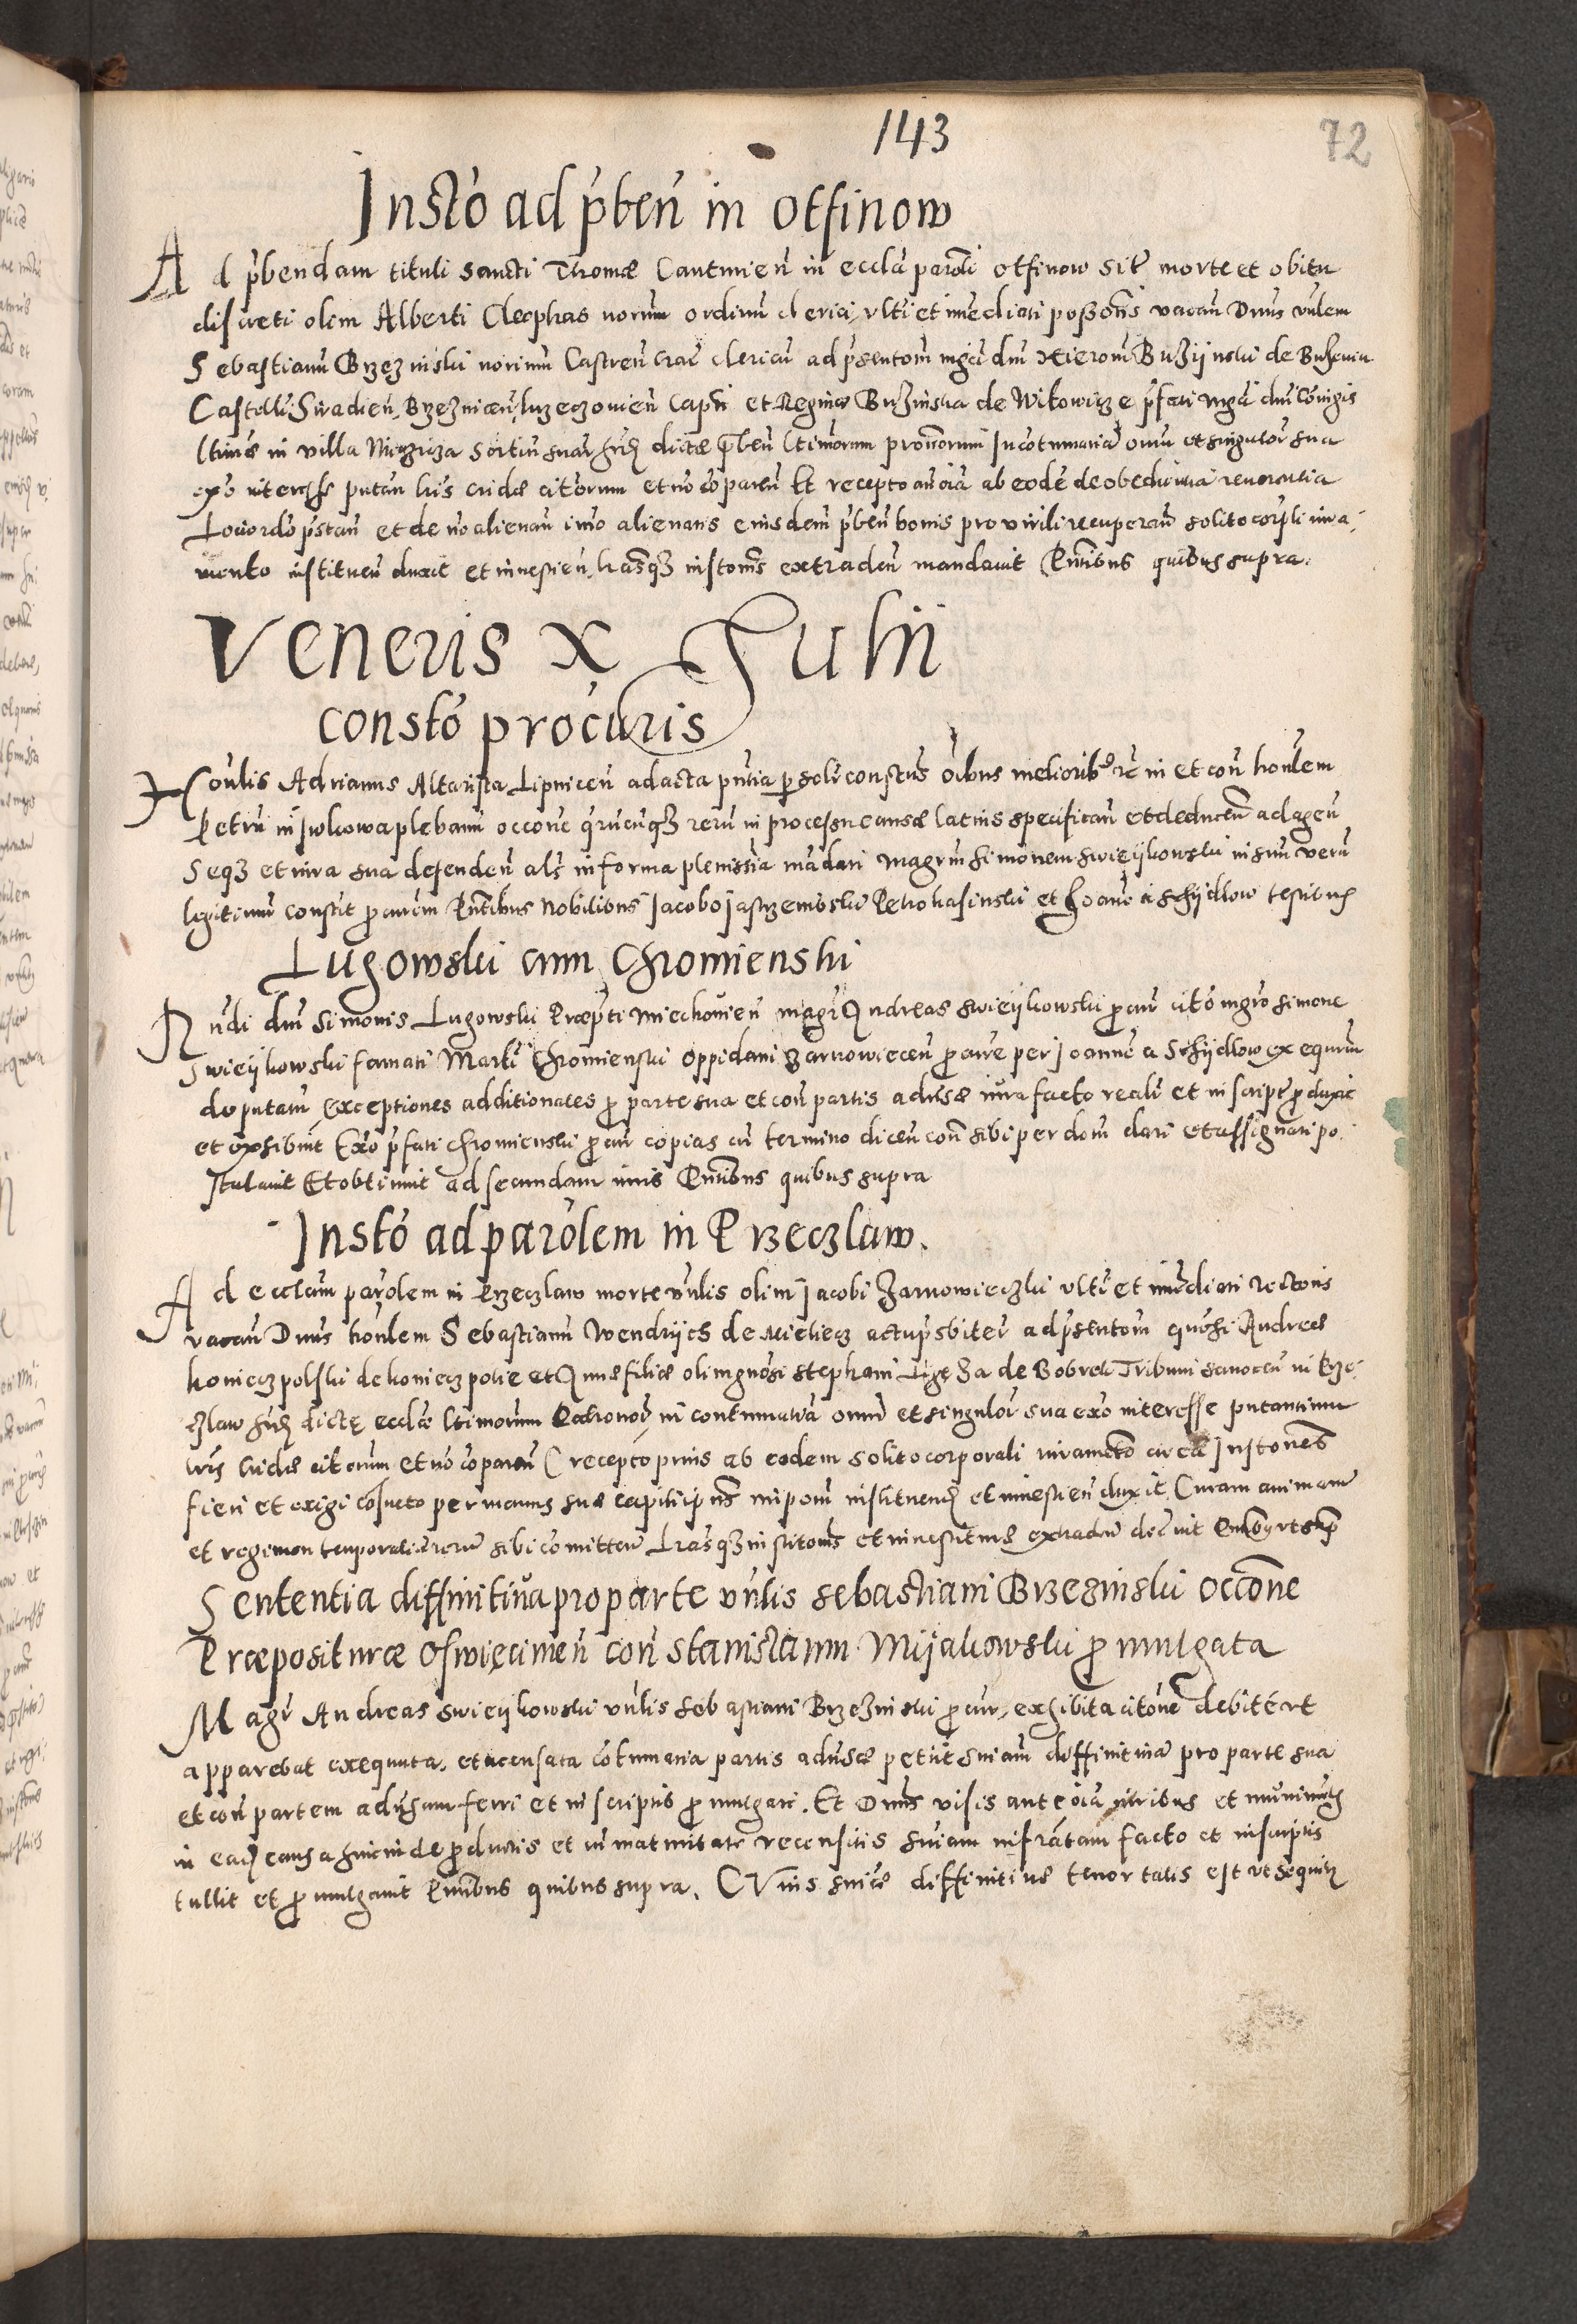 143
72
Instō ad p̄ben̄ in Otfinow
Ad p̄bendam tituli sancti Thomæ Cantuuien̄ in eccl̄a paroch̄i Otfinow sit̄ morte et obitu
discreti olim Alberti Cleophas norum ordinū clerici, vlt̄i et im̄ediati possōris vacan̄ Dn̄us vn̄lem
Sebastianū Brzezinski noriniū Castren̄ Crac̄ clericū ad p̄sentom̄ mgc̄i dn̄i Hieron̄ Buzijnski de Buzenin
Castell̄i Siradien̄, Brzezniceń, Krzeczowien̄ Capn̄i et Reginæ Buzinska de Witowicze p̄fati mgc̄i dn̄i cōniugis
in villa Nieczicza dictæ p̄ben̄ et singulor̄ sua
putan̄ cridæ citorum et nō cōparen̄ Et recepto an̄ oīa ab eodē de obedientia reuerentia
Lociordō p̄stan̄ et de nō alienan̄ imo alienatis eiusdem p̄ben̄ bonis pro virili recuperan̄ solito corp̄li iura-
mento instituen̄ duxit et inuestien̄, insto̅m̅s extraden̄ mandauit P̄ntibus quibus supra.
Veneris X Julii
Constō procūris
Honlis Adrianus Altarista Lipnicen̄ ad acta pn̄tia p̄so̅l̅r̅ constus̄ oībus melioribꝰ in et con̄ honlem
Petrū in Iwkowa plebanū occōne q̄rūcūqꝫ rerū in processu causæ latius specifican̄ et deducen̄ ad agen̄
Seqꝫ et iura sua defenden̄ als̄ in forma plenissīa mādati magr̄um Simonem Swieijkowski in suū verū
legitimū constīt p̄curēm P̄ntibus Nobilibus Jacobo Jastrzembski Petro Kasinski et Joanē à Schijdlow testibus
Lugowski cum Chromienski
Rn̄di dn̄i Simonis Lugowski Præpti Miechouien̄ magr̄ Andreas Swieijkowski p̄cur̄ citō mgrō Simone
Swieijkowski famati Marti Chromienski oppidani Zarnowiecen̄ p̄cure per Joannē a Schijdlow ex equriu
deputatū exceptiones additionales p̄ parte sua et con̄ partis aduersæ iura facto reali et in script̄ p̄duxit
et exhibuit Exō p̄fati Chromienski p̄cur̄ copias cū termino dicen̄ con̄ sibi per dom̄ dari et assignari po-
stulauit Et obtinuit ad secundam iuris P̄ntibus quibus supra
Instō ad parōlem in Przeczlaw.
Ad eccl̄am parōlem in Przeczlaw morte vn̄lis olim Jacobi Zarnowieczki vlt̄i et im̄ediati rectoris
vacan̄ Dn̄us honlem Sebastianū Wendrijcs de Mieliecz actu p̄sbiter̄ ad p̄sentom̄ gn̄osi Andreæ
Koniecpolski de Koniecpolie et Annæ filiæ olim gn̄osi Stephani Ligęza de Bobrek Tribuni Sanocen̄ in Prze-
czlaw dictę eccl̄æ patronor̄ in contumatiā omn̄ et singulor̄ sua exō interesse putantium
cridæ citorum et nō cōparen̄ recepto prius ab eodem solito corporali iuramēto circa Instones
fieri et exigi cōsueto per manus suæ capiti ip̄ius impom̄ instituend̄ et inuestien̄ duxit, Curam animarū
et regimen temporaliū rerū sibi cōmitten̄ Lr̄asqꝫ institom̄s et inuestituræ extraden̄ decreuit
Sententia diffinitiua pro parte vn̄lis Sebastiani Brzezinski occōne
Præposituræ Oswięcimen̄ con̄ Stanislaum Mijakowski p̄mulgata
Magr̄ Andreas Swieijkowski vn̄lis Sebastiani Brzezinski p̄cur̄, exhibita citōne debitē vt
apparebat exequuta, et accusata cōtumatia partis aduersæ petiit sn̄iam diffinitiuā pro parte sua
et con̄ partem aduersam ferri et in scriptis p̄mulgari. Et Dn̄us visis ante oīa iuribus et munimētis
in ead̄ causa hincinde p̄ductis et in maturitate recensitis sn̄iam infrātam facto et in scriptis
tullit et p̄mulgauit P̄ntibus quibus supra. Cuius sn̄iæ diffinitiuæ tenor talis est vt sequitur